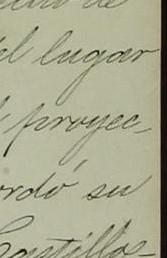 de
el lugar
proyec-
ordó su
Castillos